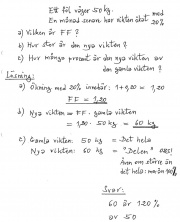 Ett föl väger 50 kg.
En månad senare har vikten ökat med 20%
a) Vilken är FF?
b) Hur stor är den nya vikten?
c) Hur många procent är den nya vikten av den gamla vikten?
Lösning:
a) Ökning med 20% innebär: 1+0,20 = 1,20
FF = 1,20
b) Nya vikten = FF · gamla vikten
= 1,20 · 50 kg = 60 kg
c) Gamla vikten: 50 kg = Det hela
Nya vikten: 60 kg = "Delen" OBS!
Även om större än det hela: mer än 100%
Svar:
60 är 120%
av 50